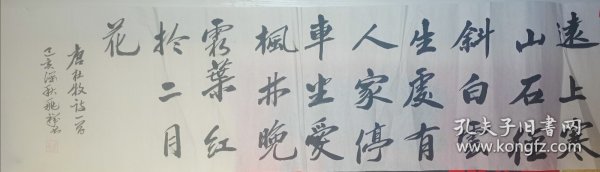 遠上寒
山石徑
斜白雲
生處有
人家停
車坐愛
楓林晚
霜葉紅
於二月
花
唐杜牧詩一首
己亥深秋
孔夫子旧书网
www.kongfz.com